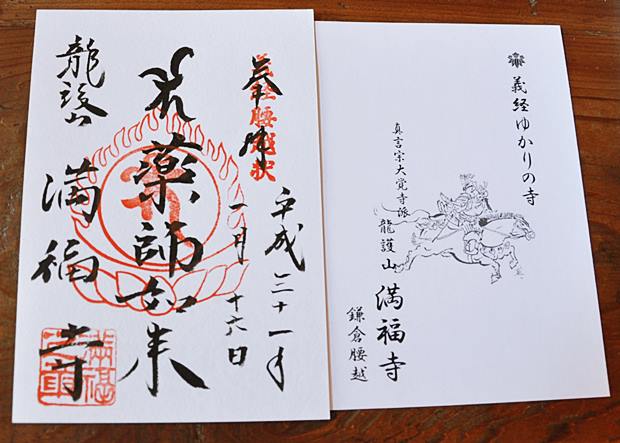 奉拝
義経腰越状
平成三十一年
一月十六日
薬師如来
龍護山
満福寺
義経ゆかりの寺
真言宗大覚寺派
龍護山 満福寺
鎌倉腰越